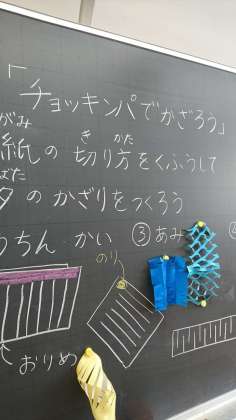 「チョッキンパでかざろう」
がみ き かた
紙の切り方をくふうして
ばた
のかざりをつくろう
ちん かい ③あみ
のり
おりめ